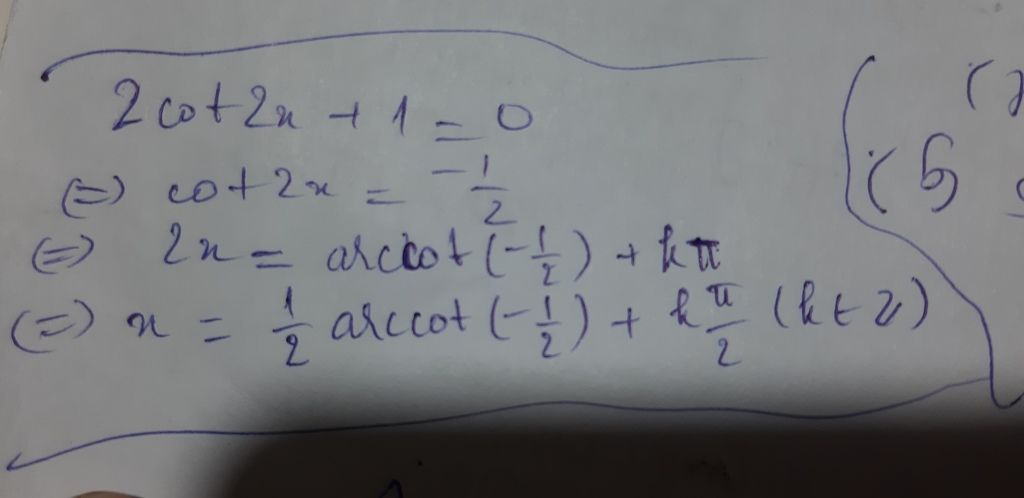 2cot2x + 1 = 0
(=) cot2x = -1/2
(=) 2x = arccot(-1/2) + kπ
(=) x = 1/2 arccot(-1/2) + k π/2 (k ∈ Z)